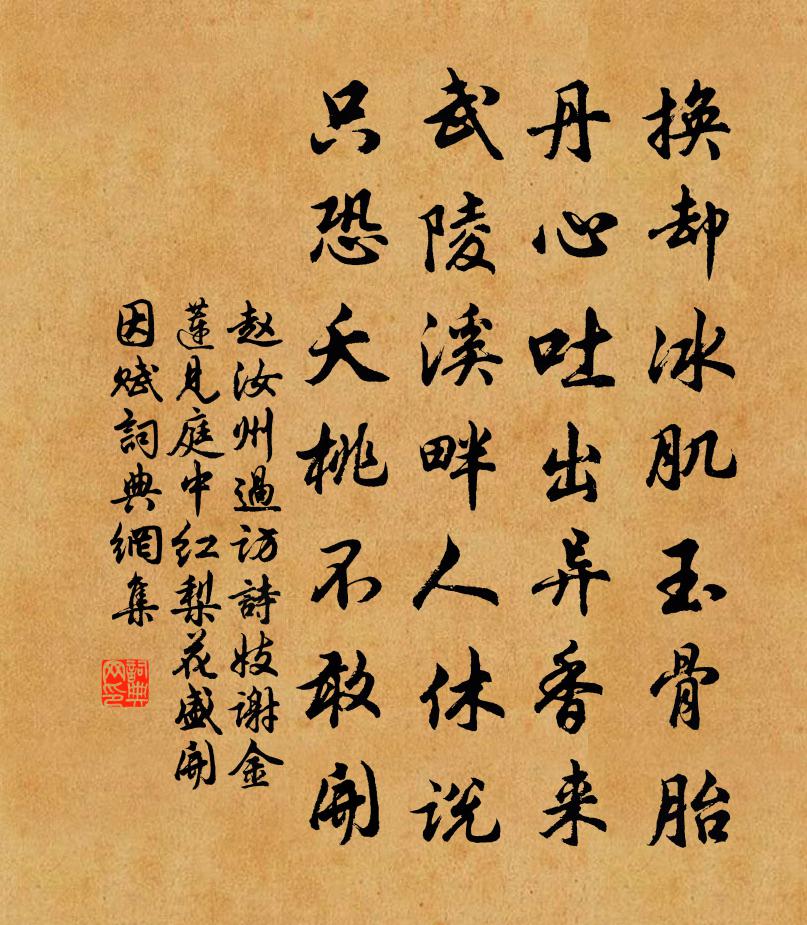 换却冰肌玉骨胎
丹心吐出异香来
武陵溪畔人休说
只恐夭桃不敢開
赵汝州過访詩妓謝金
蓮見庭中红梨花盛開
因赋詞典網集
詞典
网印